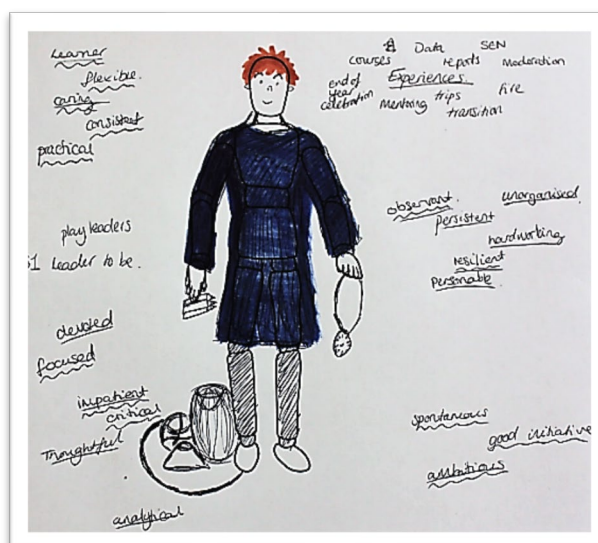 Learner
flexible.
caring
consistent
practical
play leaders
S1 leader to be.
devoted
focused
impatient
critical
Thoughtful
analytical
Data SEN
courses reports Moderation
Experiences.
end of
year
celebration
Mentoring trips fire
transition
observant. unorganised.
persistent
hardworking
resilient
personable
spontaneous
good initiative
ambitious